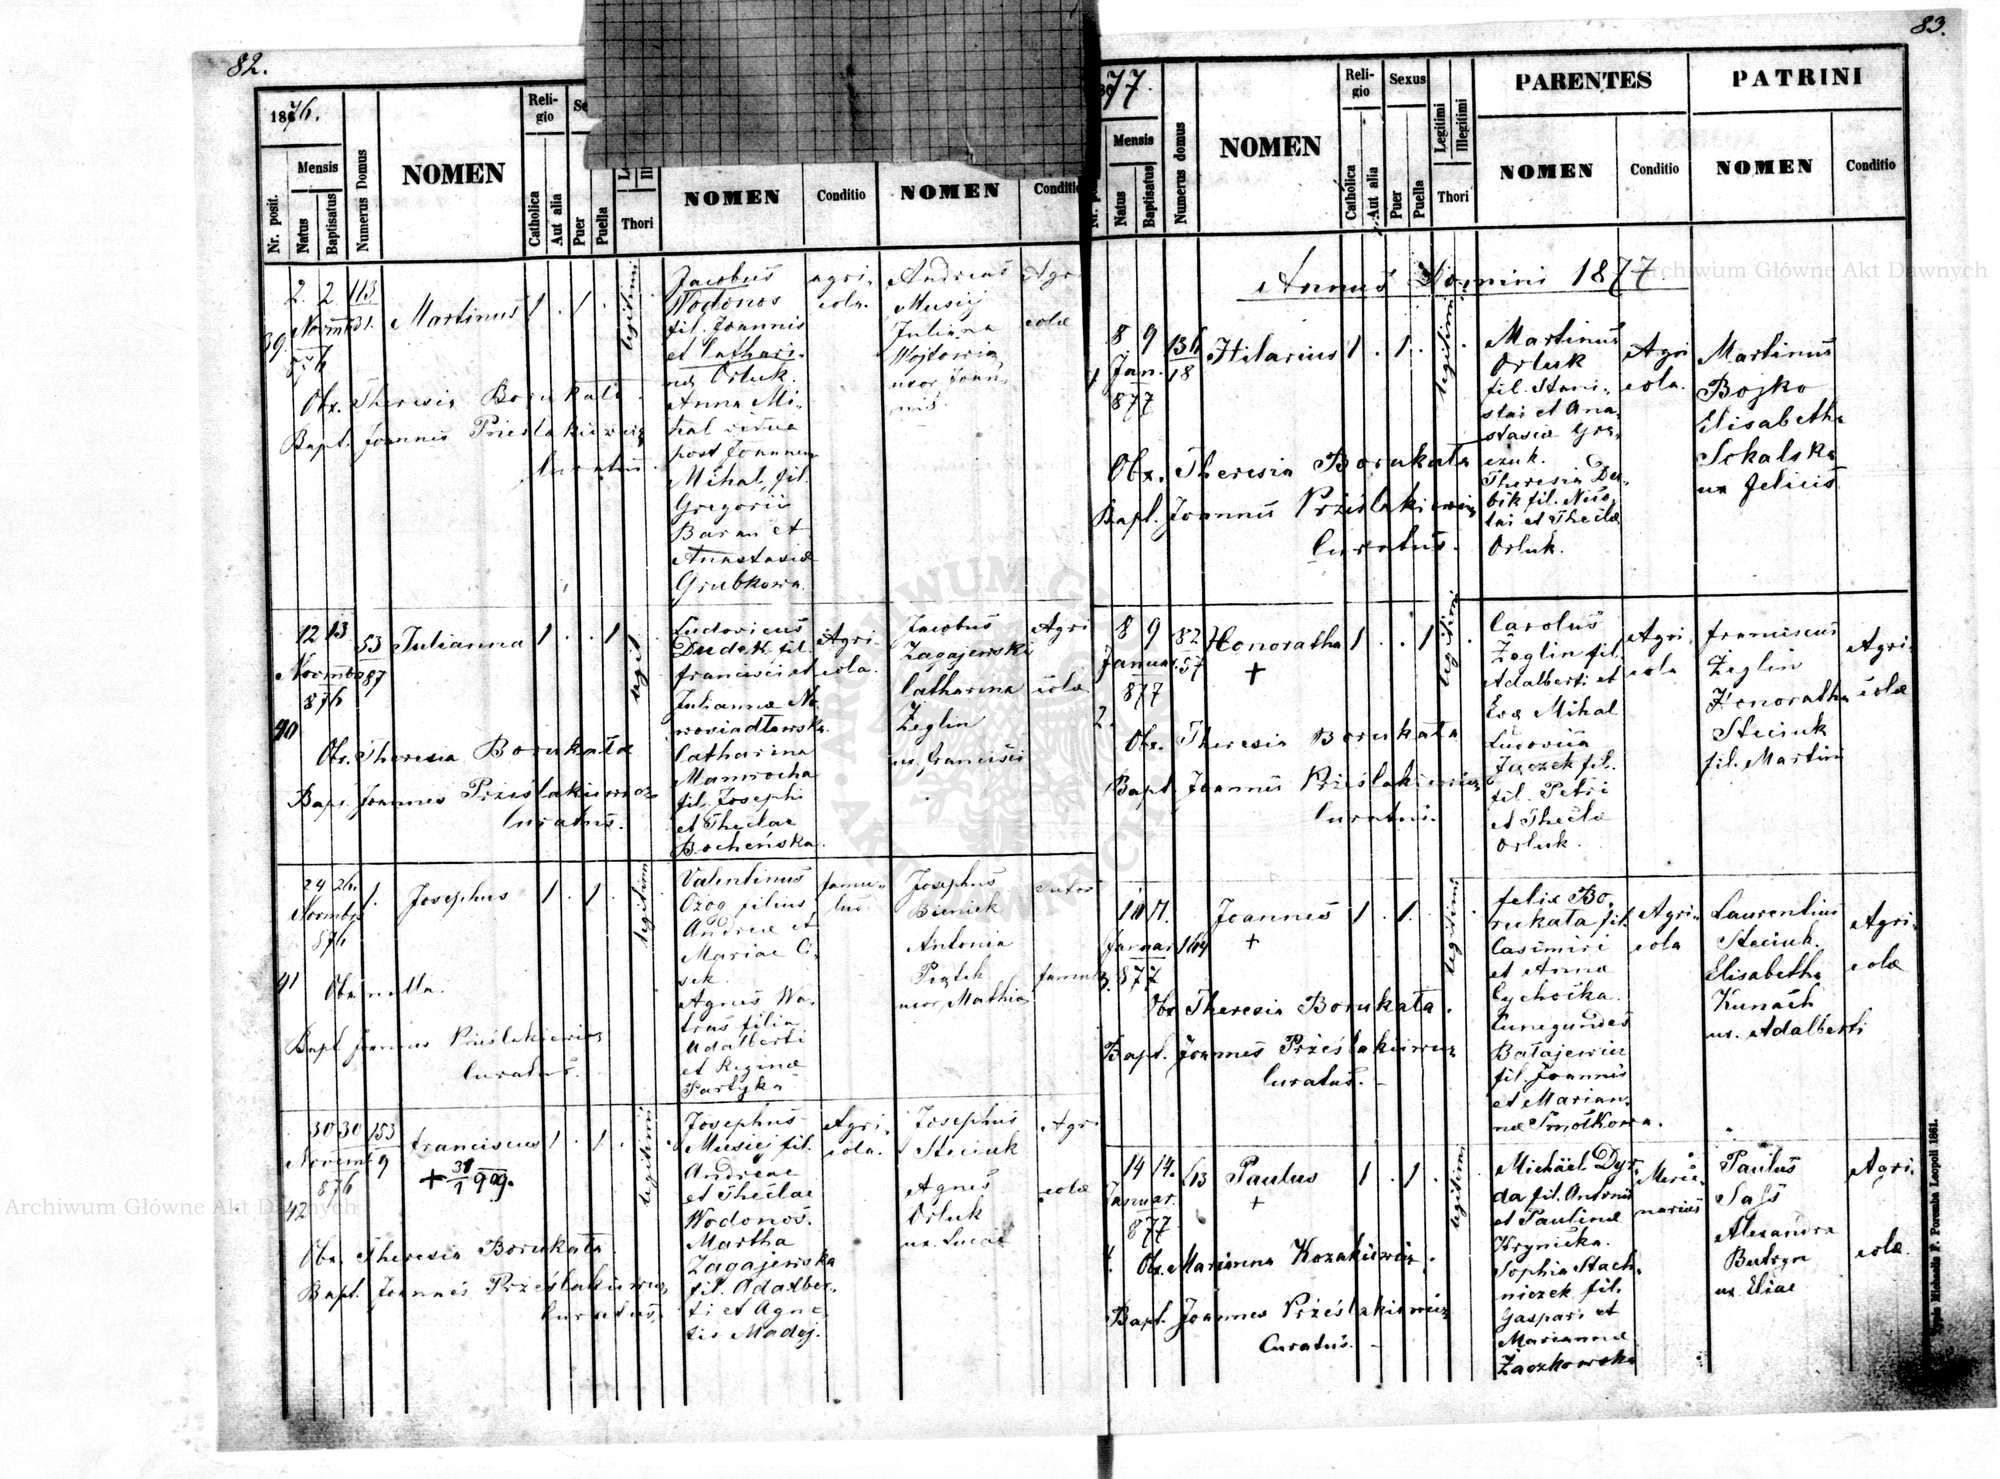 82.
1876.
Nr. posit.
Mensis
Natus
Baptisatus
Numerus Domus
NOMEN
Reli-
gio
Catholica
Aut alia
Puer
Puella
Thori
NOMEN
Conditio
NOMEN
Conditio
39
2. 2 113
Novemb 131.
876
Martinus 1 . 1 .
legitimi
Jacobus
Wodonos
fil. Joannis
et Cathari-
nae Orluk.
Anna Mi-
hal vidua
post Joannem
Mihal, fil.
Gregorii
Baran et
Anastasiae
Grubkowa.
agri-
cola.
Andreas
Musiej
Juliana
Wojtowicz
uxor Joan-
nis.
Agri
colae
Obx. Theresia Borukata.
Bapt. Joannes Prześlakiewicz
Curatus.
40
12 13 53
Novembr 87
876
Julianna 1 . . 1
legit
Ludovicus
Dudek fil.
Francisci et
Juliannae No-
wosiadłowska.
Catharina
Mamrocha
fil. Josephi
et Theclae
Bocheńska.
Agri-
cola.
Jacobus
Zagajewski
Catharina
Żeglin
ux. Francisci
Agri
colae
Obx. Theresia Borukata
Bapt. Joannes Prześlakiewicz
Curatus.
41
24 26. 1.
Novembr
876
Josephus 1 . 1 .
legitimi
Valentinus
Ozog filius
Andreae et
Mariae Ci-
sek.
Agnes Wa-
trus filia
Adalberti
et Reginae
Partyka
famu-
lus.
Josephus
Bieniek
Antonia
Piątek
uxor Mathiae
sutor
famul
Obx. nulla.
Bapt Joannes Prześlakiewicz
Curatus.
42
30 30 153
Novemb 9
876
Franciscus 1 . 1 .
+ 31/1 909.
legitimi
Josephus
Musiej fil.
Andreae
et Theclae
Wodonos.
Martha
Zagajewska
fil. Adalber-
ti et Agne-
tis Madej.
Agri-
cola.
Josephus
Steciuk
Agnes
Orluk
ux. Lucae
Agri
colae
Obx. Theresia Borukata.
Bapt. Joannes Prześlakiewicz
Curatus.
83.
1877.
Mensis
Natus
Baptisatus
Numerus domus
NOMEN
Reli-
gio
Catholica
Aut alia
Sexus
Puer
Puella
Legitimi
Illegitimi
Thori
PARENTES
NOMEN
Conditio
PATRINI
NOMEN
Conditio
Annus Domini 1877.
1
8 9 136
Jan. 18
877
Hilarius 1 . 1 .
legitimi
Martinus
Orluk
fil. Stani-
slai et Ana-
stasiae Gra-
czuk.
Theresia Du-
bik fil. Nics-
lai et Theclae
Orluk.
Agri
cola.
Martinus
Bojko
Elisabetha
Sokalska
ux Felicis
Obx. Theresia Borukata
Bapt. Joannes Prześlakiewicz
Curatus.
2.
8 9 82
Januar. 57
877
Honoratha 1 . . 1 .
+
legitimi
Carolus
Żeglin fil.
Adalberti et
Evae Mihal
Ludovica
Jączek fil.
fil. Petri
et Theclae
Orluk.
Agri
cola
Franciscus
Żeglin
Honoratha
Steciuk
fil. Martini
Agri-
colae
Obx. Theresia Borukata
Bapt. Joannes Prześlakiewicz
Curatus.
3.
Januar 164
877
Joannes 1 . 1 .
+
legitimi
Felix Bo-
rukata fil.
Casimiri
et Annae
Cychocka.
Cunegundes
Batajewicz
fil. Joannis
et Marian-
nae Smotkowa.
Agri-
cola
Laurentius
Steciuk.
Elisabetha
Kunach
ux. Adalberti
Agri-
colae
Obx Theresia Borukata.
Bapt. Joannes Prześlakiewicz
Curatus.
4.
14 14. 113
Januar.
877
Paulus 1 . 1 .
+
legitimi
Michael Dyr-
da fil. Antonii
et Paulinae
Krynicka.
Sophia Stach-
niczek fil.
Gaspari et
Mariannae
Zaczkowska
Merce-
narius
Paulus
Sass
Alexandra
Butryn
ux Eliae
Agri-
colae.
Obx. Marianna Kozakiewicz.
Bapt. Joannes Prześlakiewicz
Curatus.
Typis Michaelis F. Poremba Leopoli 1861.
Archiwum Główne Akt Dawnych
Archiwum Główne Akt Dawnych
ARCHIWUM GŁÓWNE AKT DAWNYCH